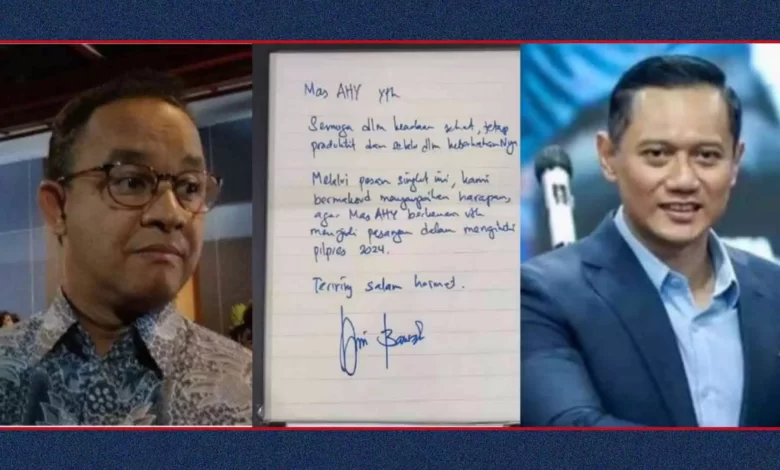 Mas AHY yth
Semoga dlm keadaan sehat, tetap
produktif dan selalu dlm kesehatanNya
Melalui pesan singkat ini, kami
bermaksud menyampaikan harapan,
agar Mas AHY berkenan utk
menjadi pasangan dalam mengikuti
pilpres 2024.
Teriring salam hormat.